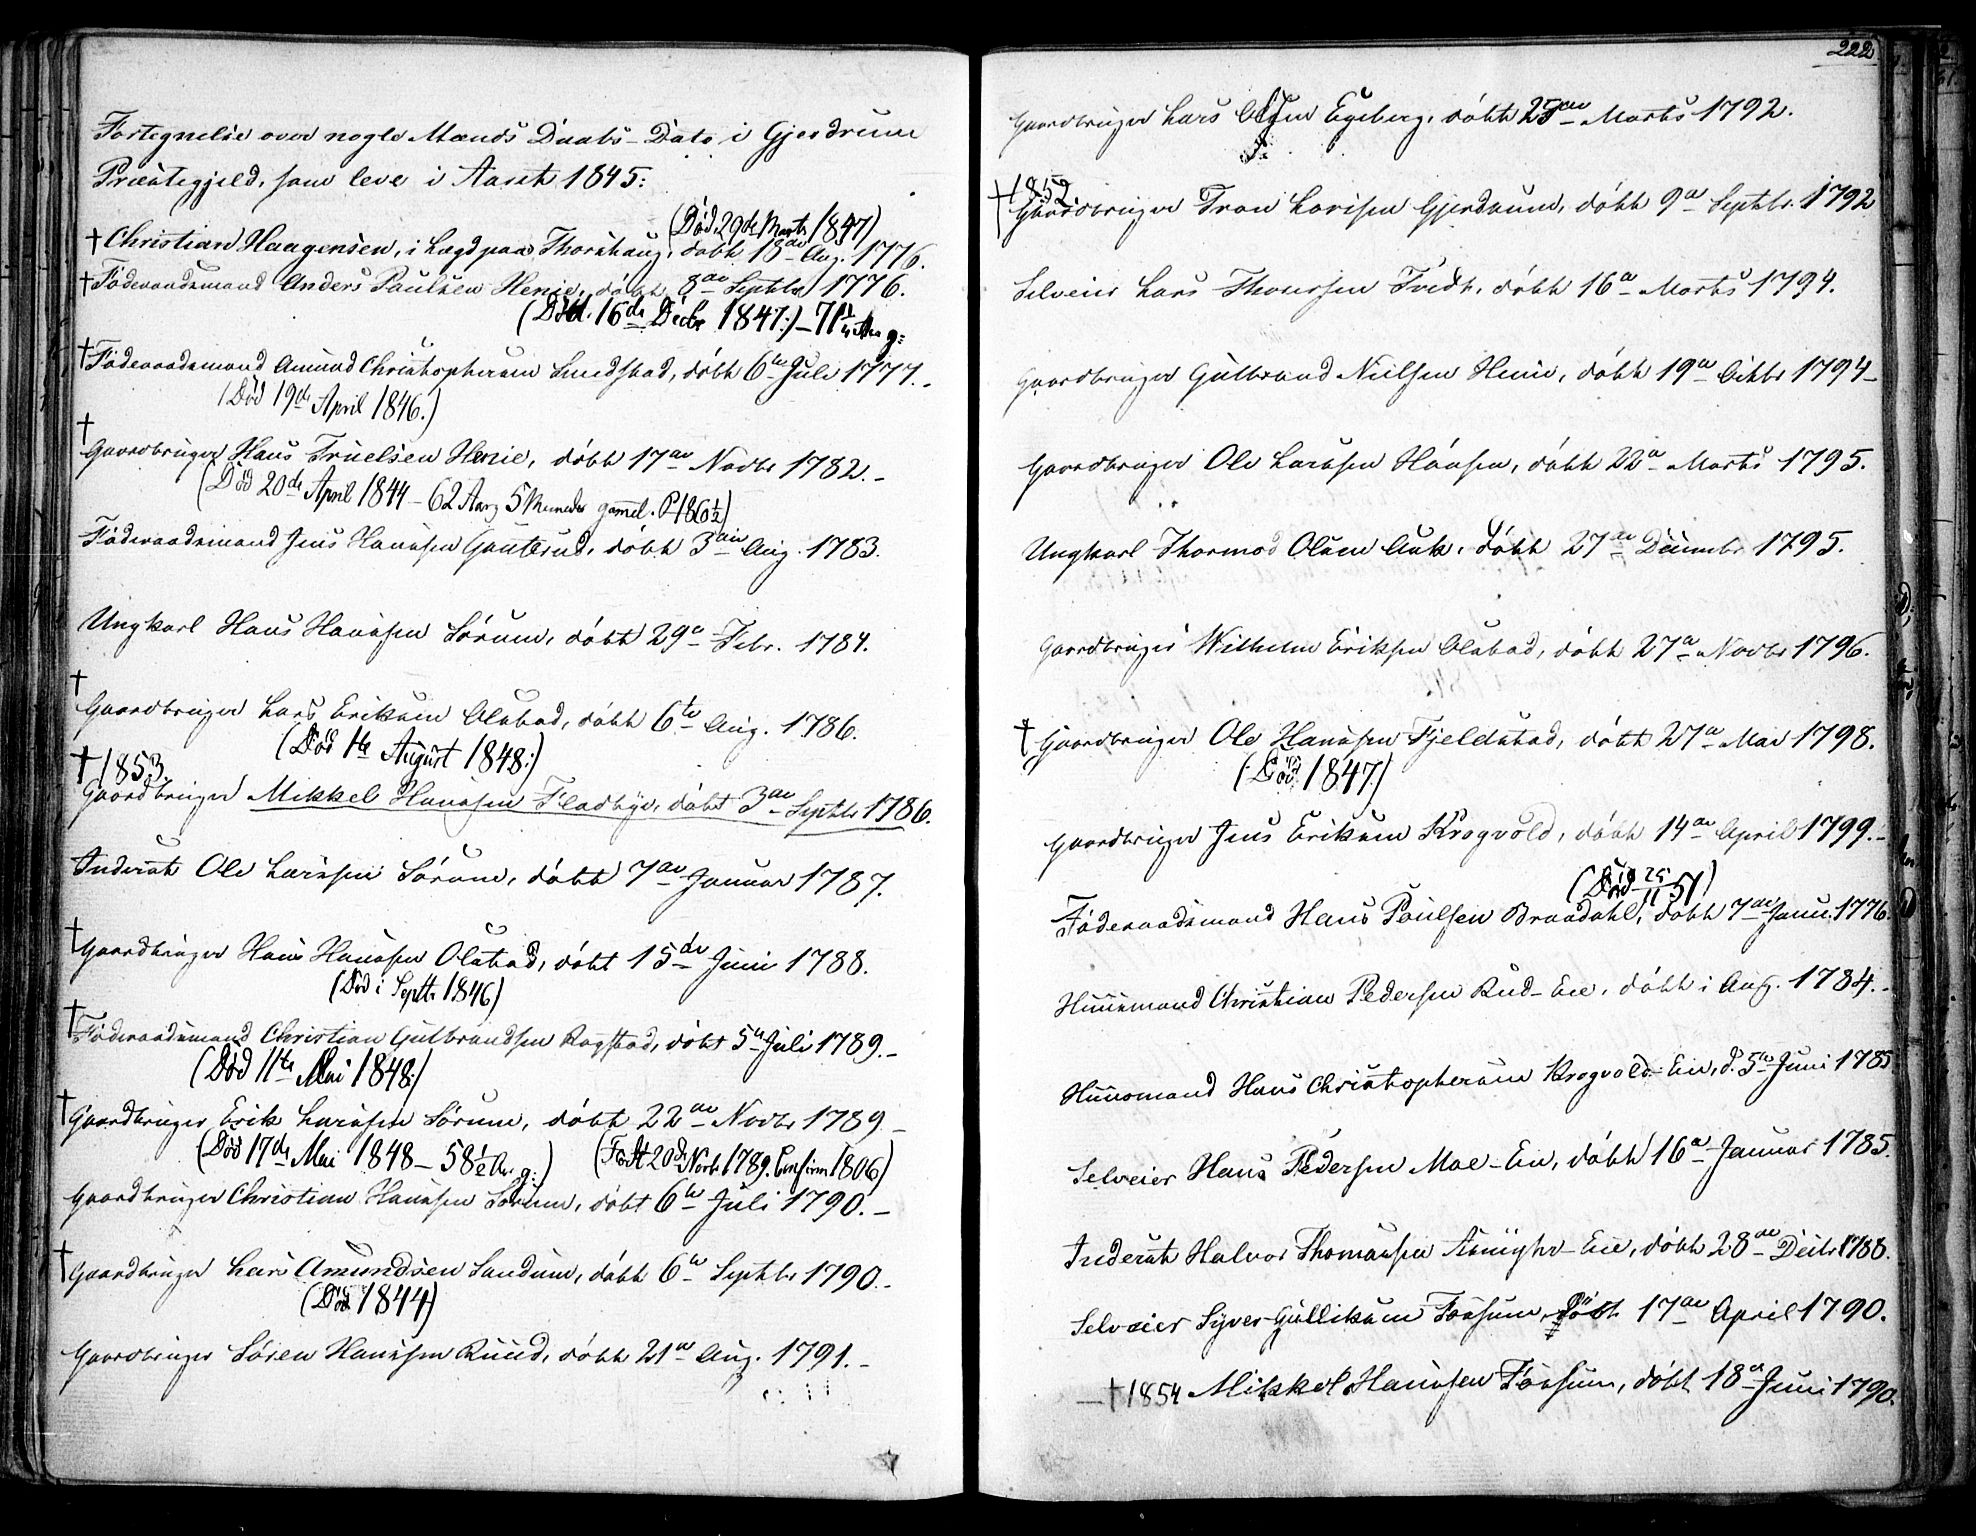 Fortegnelse over nogle Mænds Daabs-Dato i Gjerdrum
Præstegjeld, som leve i Aaret 1845:
(Död 29de Marts 1847)
† Christian Haagensen, i Lægd paa Thorshaug, döbt 18de Aug. 1776.
† Föderaadsmand Anders Paulsen Henie, döbt 8de Septbr 1776.
(Död. 16de Decbr 1847:) – 71 1/4 Aar g:
† Föderaadsmand Amund Christophersen Smedstad, döbt 6te Juli 1777. –
(Död 19de April 1846.)
†
Gaardbruger Hans Truelsen Henie, döbt 17de Novbr 1782. –
(Död 20de April 1844 – 62 Aar, 5 Maaneder gammel. P 186 1/2)
Föderaadsmand Jens Hansen Gauterud, döbt 3die Aug. 1783.
Ungkarl Hans Hansen Sörum, döbt 29de Febr. 1784.
†
Gaardbruger Lars Eriksen Olstad, döbt 6te Aug. 1786.
(Död 1te August 1848:)
† 1853
Gaardbruger Mikkel Hansen Fladbye, döbt 3die Septbr 1786.
Inderst Ole Larssen Sörum, döbt 7de Januar 1787.
† Gaardbruger Hans Hansen Olstad, döbt 15de Juni 1788.
(Död i Septbr 1846)
† Föderaadsmand Christian Gulbrandsen Rogstad, döbt 5te Juli 1789. –
(Död 11te Mai 1848:)
† Gaardbruger Erik Larssen Sörum, döbt 22de Novbr 1789 –
(Död 17de Mai 1848 – 58 1/2 Aar g:) (Födt 20de Novbr 1789. Confirm 1806)
Gaardbruger Christian Hansen Sörum, döbt 6te Juli 1790. –
† Gaardbruger Lars Amundsen Sandum, döbt 6te Septbr 1790. –
(Död 1844)
Gaardbruger Sören Hansen Ruud, döbt 21de Aug. 1791. –
222
Gaardbruger Lars Olsen Egeberg, döbt 25de Marts 1792.
† 1852
Gaardbruger Tron Larssen Gjerdrum, döbt 9de Septbr. 1792
Selveier Lars Thorersen Tvedt, döbt 16de Marts 1794.
Gaardbruger Gulbrand Nielsen Henie, döbt 19de Octbr 1794 –
Gaardbruger Ole Larssen Hönsen, döbt 22de Marts 1795.
Ungkarl Thormod Olsen Ask, döbt 27de Decembr 1795.
Gaardbruger Wilhelm Eriksen Olstad, döbt 27de Novbr 1796.
† Gaardbruger Ole Hansen Fjeldstad, döbt 27de Mai 1798.
(Död 1847)
Gaardbruger Jens Eriksen Krogvold, döbt 14de April 1799. –
(Död 25/11 51)
Föderaadsmand Hans Poulsen Braadahl, döbt 7de Janu. 1776.
Huusmand Christian Pedersen Rud-Eie, döbt i Aug. 1784. –
Huusmand Hans Christophersen Krogvold-Eie, d. 5te Juni 1785
Selveier Hans Pedersen Moe-Eie, döbt 16de Januar 1785.
Inderst Halvor Thomassen -Eie, döbt 28de Decbr 1788.
Selveier Syver Gulliksen Fossum, döbt 17de April 1790.
– † 1854 Mikkel Hansen Fossum, döbt 18de Juni 1790.